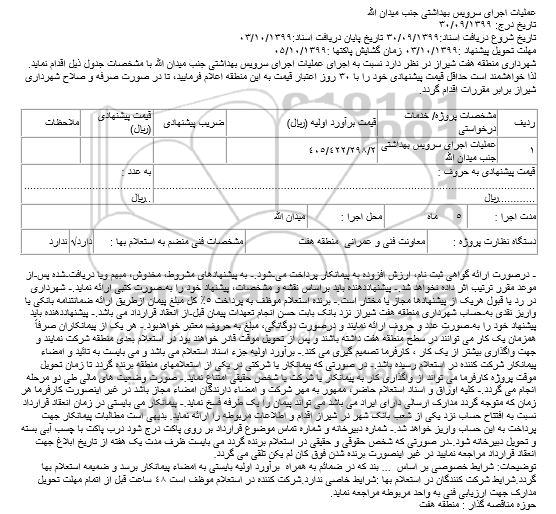 عملیات اجرای سرویس بهداشتی جنب میدان الله
تاریخ درج: ۳۰/۰۹/۱۳۹۹
تاریخ شروع دریافت اسناد:۳۰/۰۹/۱۳۹۹ تاریخ پایان دریافت اسناد:۰۳/۱۰/۱۳۹۹
مهلت تحویل پیشنهاد :۰۳/۱۰/۱۳۹۹ زمان گشایش پاکتها :۰۵/۱۰/۱۳۹۹
شهرداری منطقه هفت شیراز در نظر دارد نسبت به اجرای عملیات اجرای سرویس بهداشتی جنب میدان الله با مشخصات جدول ذیل اقدام نماید.
لذا خواهشمند است حداقل قیمت پیشنهادی خود را با ۳۰ روز اعتبار قیمت به این منطقه اعلام فرمایید، تا در صورت صرفه و صلاح شهرداری
شیراز برابر مقررات اقدام گردد.
ردیف مشخصات پروژه/ خدمات درخواستی قیمت برآورد اولیه (ریال) ضریب پیشنهادی قیمت پیشنهادی (ریال) ملاحظات
۱ عملیات اجرای سرویس بهداشتی جنب میدان الله ۴۰۵/۴۲۲/۲۹۸/۲
قیمت پیشنهادی به حروف : به عدد :
............ریال ..ریال
مدت اجرا : ۵ ماه محل اجرا : میدان الله
دستگاه نظارت پروژه : معاونت فنی و عمرانی منطقه هفت مشخصات فنی منضم به استعلام بها : دارد/× ندارد
- درصورت ارائه گواهی ثبت نام، ارزش افزوده به پیمانکار پرداخت می‌شود.- به پیشنهادهای مشروط، مخدوش، مبهم ویا دریافت‌شده پس‌از
موعد مقرر ترتیب اثر داده نخواهد شد.- پیشنهاددهنده باید براساس نقشه و مشخصات، پیشنهاد خود را به‌صورت کتبی ارائه نماید.- شهرداری
در رد یا قبول هریک از پیشنهادها مجاز یا مختار است.- برنده استعلام موظف به پرداخت ۵٪ کل مبلغ پیمان ازطریق ارائه ضمانتنامه بانکی یا
واریز نقدی به‌حساب شهرداری منطقه هفت شیراز نزد بانک بابت حسن انجام تعهدات پیمان قبل‌از انعقاد قرارداد می باشد.- پیشنهاددهنده باید
پیشنهاد خود را به‌صورت عدد و حروف ارائه نمایند و درصورت دوگانگی، مبلغ به حروف معتبر خواهدبود.- هر یک از پیمانکاران صرفاً
همزمان یک کار می توانند در سطح منطقه هفت داشته باشند و پس از تحویل موقت قادر خواهند بود در استعلام بعدی منطقه شرکت نمایند و
جهت واگذاری بیشتر از یک کار ، کارفرما تصمیم گیری می کند.- برآورد اولیه جزء اسناد استعلام می باشد و می بایست به تائید و امضاء
پیمانکار شرکت کننده در استعلام رسیده باشد.- در صورتی که پیمانکار یا شرکتی در یکی از استعلامهای منطقه برنده گردد تا زمان تحویل
موقت پروژه کارفرما می تواند از واگذاری کار به پیمانکار یا شرکت یا شخص حقیقی امتناع نماید.-صورت وضعیت های مالی طی دو مرحله
انجام می گردد.- کلیه اوراق و اسناد استعلام حاضر، ممهور به مهر شرکت و امضاء دارندگان امضاء مجاز باشد در غیر اینصورت کارفرما هر
زمان که متوجه گردد مدارک ارسالی دارای ایراد می باشد می تواند پیمان را یک طرفه فسخ نماید.- پیمانکار می بایستی در زمان انعقاد قرارداد
نسبت به افتتاح حساب نزد یکی از شعب بانک شهر در شیراز اقدام و اطلاعات مربوطه را ارائه نماید. بدیهی است مطالبات پیمانکار جهت
پرداخت به این حساب واریز خواهد شد.- شماره دبیرخانه و شماره تماس موضوع قرارداد بر روی پاکت درج شود درب پاکت با چسب آبی بسته
و تحویل دبیرخانه شود.-در صورتی که شخص حقوقی و حقیقی در استعلام برنده گردد می بایست ظرف مدت یک هفته از تاریخ ابلاغ جهت
انعقاد قرارداد مراجعه نمایید در غیر اینصورت برنده شدن فوق کان لم یکن تلقی می گردد.
توضیحات: شرایط خصوصی بر اساس ... بند که در ضمائم به همراه برآورد اولیه بایستی به امضاء پیمانکار برسد و ضمیمه استعلام بها
گردد.شرایط شرکت کنندگان در استعلام بها :شرایط خاصی ندارد.شرکت کننده در استعلام موظف است ۴۸ ساعت قبل از اتمام مهلت تحویل
مدارک جهت ارزیابی فنی به واحد مربوطه مراجعه نماید.
حوزه مناقصه گذار : منطقه هفت